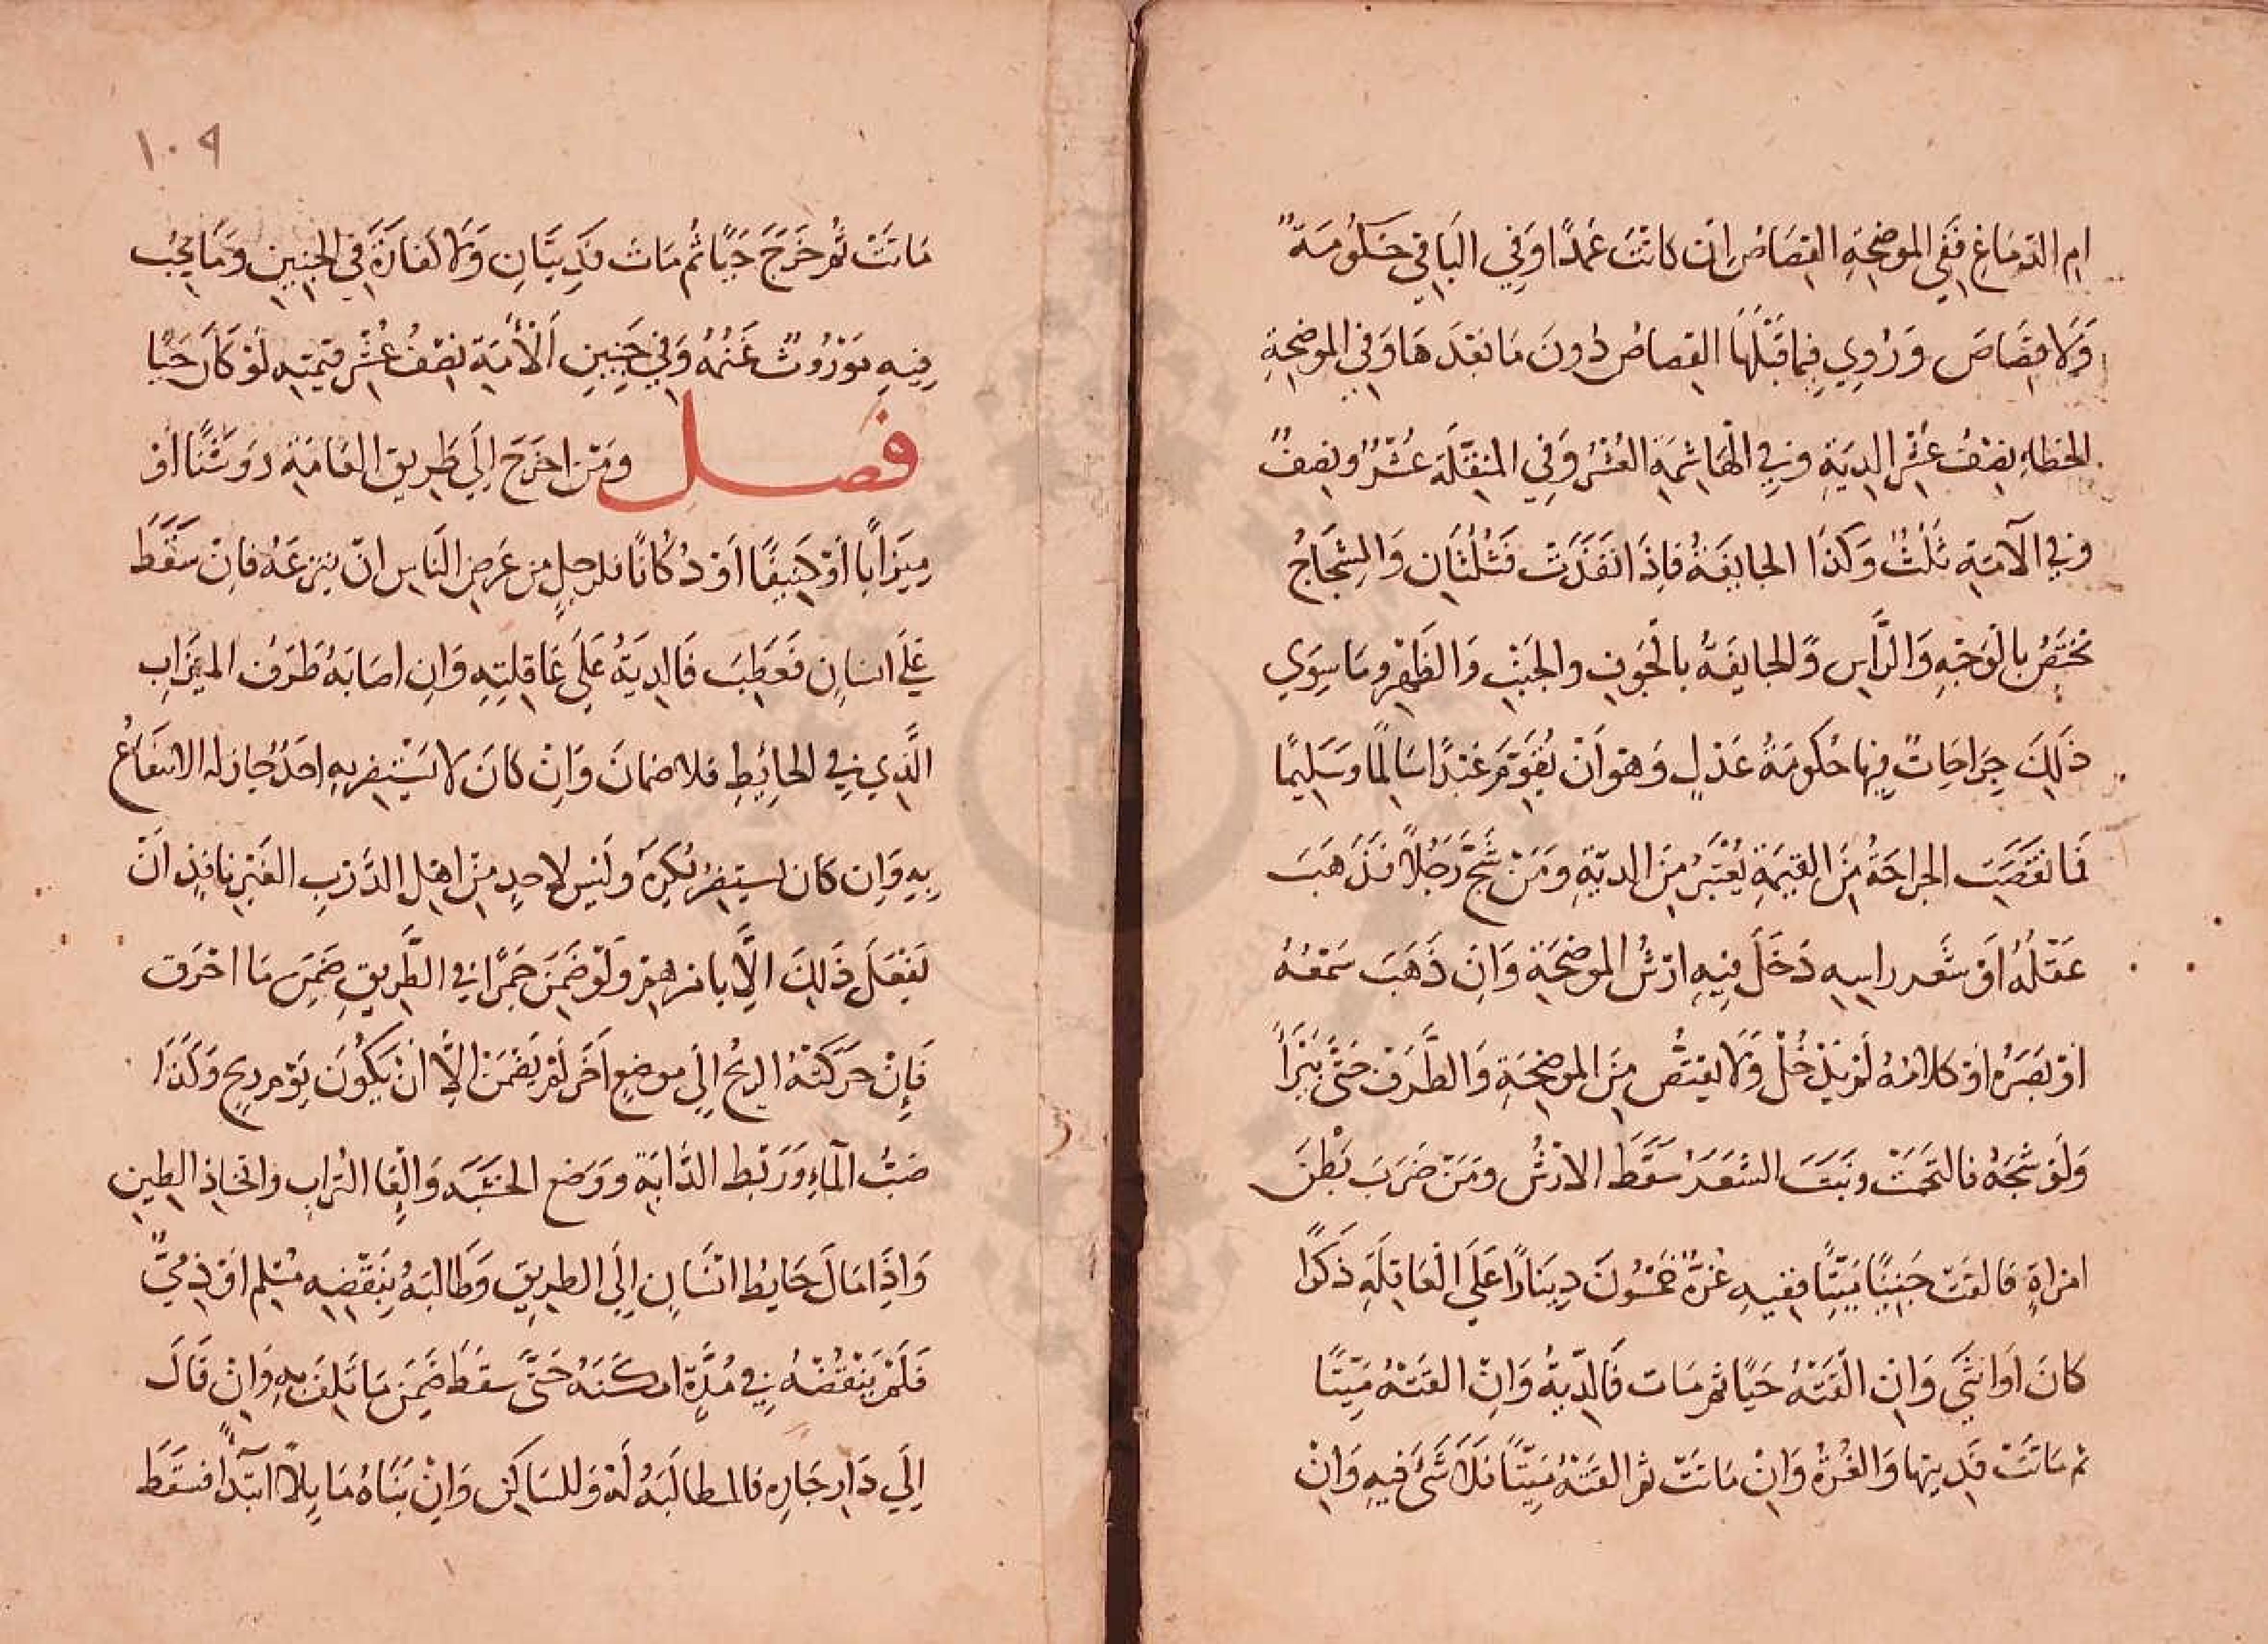 ام الدماغ ففي الموضحة القصاص ان كانت عمدا وفي الباقي حكومة
ولا قصاص وروي فيما قبلها القصاص دون ما بعدها وفي الموضحة
الخطاء نصف عشر الدية وفي الهاشمة العشر وفي المنقلة عشر ونصف
وفي الآمة ثلث وكذا الجايفة فاذا نفذت فثلثان والشجاج
تختص بالوجه والراس والجايفة بالجوف والجنب والظهر وما سوي
ذلك جراحات فيها حكومة عدل وهو ان يقوم عبدا سالما وسليما
فما نقصت الجراحة من القيمة يعتبر من الدية ومن شج رجلا فذهب
عقله او شعر راسه دخل فيه ارش الموضحة وان ذهب سمعه
او بصره او كلامه لم يدخل ولا يقتص من الموضحة والطرف حتى تبرأ
ولو شجه فالتحمت ونبت الشعر سقط الارش ومن ضرب بطن
امراة فالقت جنينا ميتا ففيه غرة خمسون دينارا على العاقلة ذكرا
كان او انثى وان القته حيا ثم مات فالدية وان القته ميتا
ثم ماتت فديتها والغرة وان ماتت ثم القته ميتا فلا شئ فيه وان
١٠٩
ماتت ثم خرج حيا ثم مات فديتان ولا كفارة في الجنين وما يجب
فيه موروث عنه وفي جنين الأمة نصف عشر قيمته لو كان حيا
فصل ومن اخرج الي طريق العامة روشنا او
ميزابا او كنيفا او دكانا فلرجل من عرض الناس ان ينزعه فان سقط
علي انسان فعطب فالدية على عاقلته وان اصابه طرف الميزاب
الذي في الحائط فلا ضمان وان كان لا يستضر به احد جاز له الانتفاع
به وان كان يستضر يكره وليس لاحد من اهل الدرب الغير نافذ ان
يفعل ذلك الا باذنهم ولو ضمن جمرا في الطريق ضمن ما احرق
فان حركته الريح الي موضع آخر لم يضمن الا ان يكون يوم ريح وكذا
صب الماء وربط الدابة ووضع الخشبة والقا التراب واتخاذ الطين
واذا مال حايط انسان الي الطريق وطالبه بنقضه مسلم او ذمي
فلم ينقضه في مدة امكنه حتى سقط ضمن ما تلف به وان قال
الي دار جاره فالمطالبه له وللساكن وان بناه مايلا ابتدا فسقط